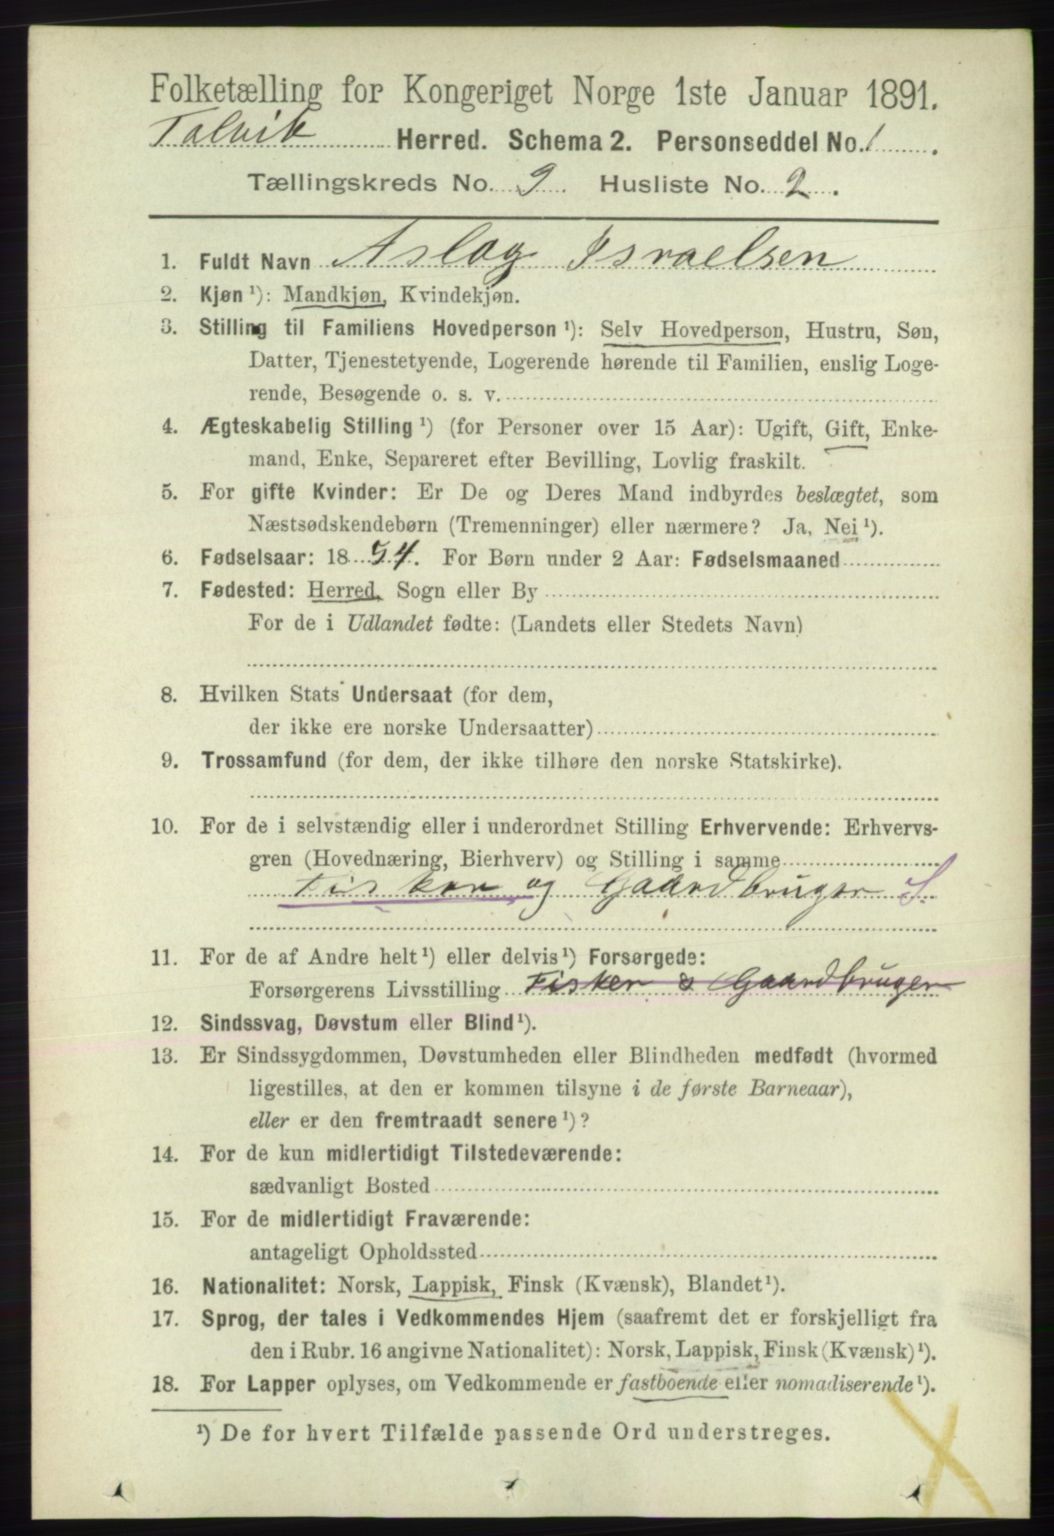 Folketælling for Kongeriget Norge 1ste Januar 1891.
Talvik Herred. Schema 2. Personseddel No. 1.
Tællingskreds No. 9 Husliste No. 2.
1. Fuldt Navn Aslag Israelsen
2. Kjøn ¹): Mandkjøn, Kvindekjøn.
3. Stilling til Familiens Hovedperson ¹): Selv Hovedperson, Hustru, Søn,
Datter, Tjenestetyende, Logerende hørende til Familien, enslig Loge-
rende, Besøgende o. s. v.
4. Ægteskabelig Stilling ¹) (for Personer over 15 Aar): Ugift, Gift, Enke-
mand, Enke, Separeret efter Bevilling, Lovlig fraskilt.
5. For gifte Kvinder: Er De og Deres Mand indbyrdes beslægtet, som
Næstsødskendebørn (Tremenninger) eller nærmere? Ja, Nei ¹).
6. Fødselsaar: 1854. For Børn under 2 Aar: Fødselsmaaned
7. Fødested: Herred, Sogn eller By
For de i Udlandet fødte: (Landets eller Stedets Navn)
8. Hvilken Stats Undersaat (for dem,
der ikke ere norske Undersaatter)
9. Trossamfund (for dem, der ikke tilhøre den norske Statskirke).
10. For de i selvstændig eller i underordnet Stilling Erhvervende: Erhvervs-
gren (Hovednæring, Bierhverv) og Stilling i samme
Fisker og Gaardbruger S.
11. For de af Andre helt ¹) eller delvis ¹) Forsørgede:
Forsørgerens Livsstilling Fisker & Gaardbruger
12. Sindssvag, Døvstum eller Blind ¹).
13. Er Sindssygdommen, Døvstumheden eller Blindheden medfødt (hvormed
ligestilles, at den er kommen tilsyne i de første Barneaar),
eller er den fremtraadt senere ¹)?
14. For de kun midlertidigt Tilstedeværende:
sædvanligt Bosted
15. For de midlertidigt Fraværende:
antageligt Opholdssted
16. Nationalitet: Norsk, Lappisk, Finsk (Kvænsk), Blandet ¹).
17. Sprog, der tales i Vedkommendes Hjem (saafremt det er forskjelligt fra
den i Rubr. 16 angivne Nationalitet): Norsk, Lappisk, Finsk (Kvænsk) ¹).
18. For Lapper oplyses, om Vedkommende er fastboende eller nomadiserende ¹).
¹) De for hvert Tilfælde passende Ord understreges.